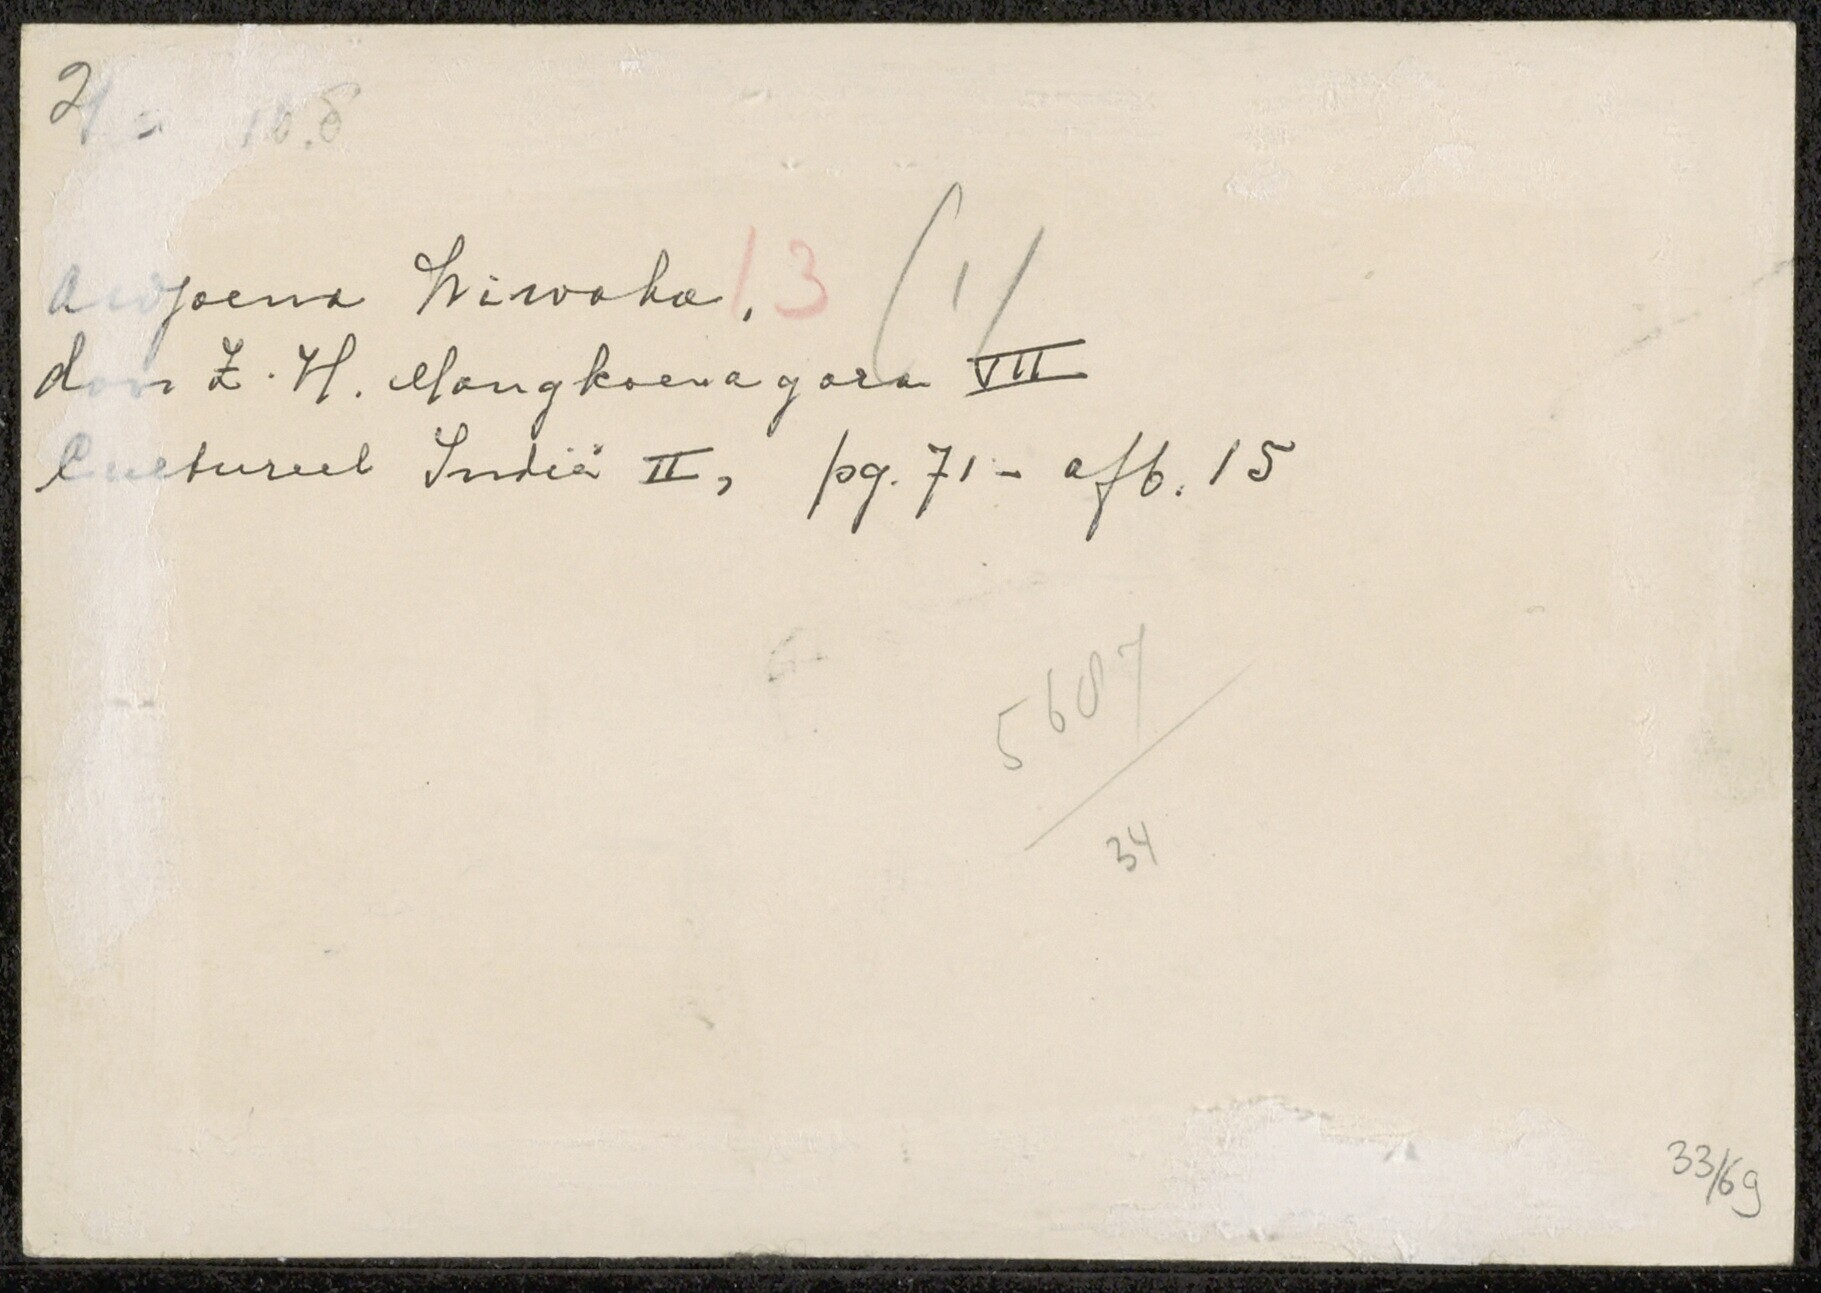 2
10.8
Ardjoena Wiwaha. 13 (1)
door Z. H. Mangkoenagara VII
Cultureel Indië II, pg. 71 - afb. 15
5687/34
33/69